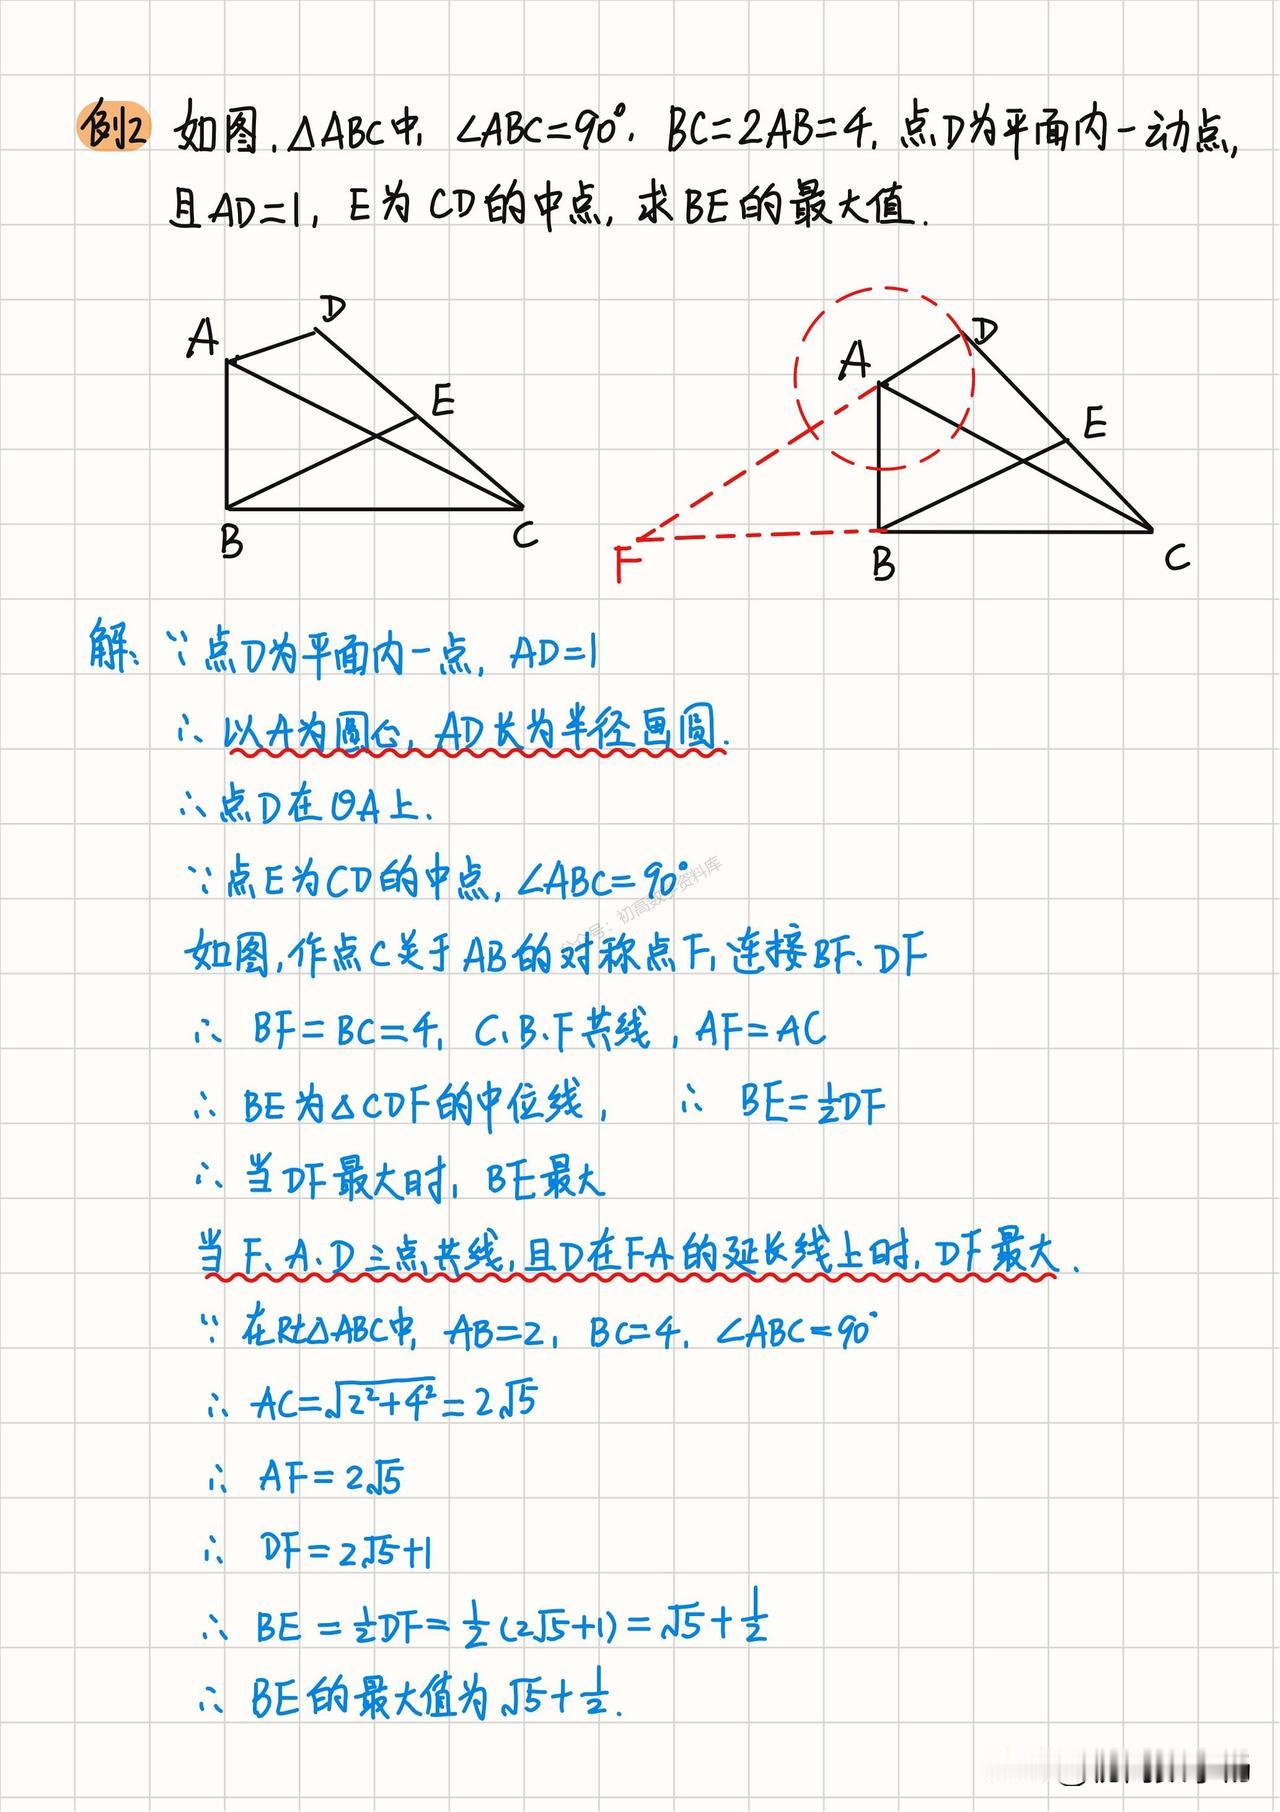 例2 如图,△ABC中,∠ABC=90°,BC=2AB=4,点D为平面内一动点,
且AD=1,E为CD的中点,求BE的最大值.
A D E B C
A D E F B C
解:∵点D为平面内一点,AD=1
∴以A为圆心,AD长为半径画圆.
∴点D在⊙A上.
∵点E为CD的中点,∠ABC=90°
公众号:初高数学资料库
如图,作点C关于AB的对称点F,连接BF、DF
∴ BF=BC=4, C、B、F共线,AF=AC
∴ BE为△CDF的中位线, ∴ BE=½DF
∴ 当DF最大时,BE最大
当F、A、D三点共线,且D在FA的延长线上时,DF最大.
∵ 在Rt△ABC中,AB=2, BC=4, ∠ABC=90°
∴ AC=√(2²+4²)=2√5
∴ AF=2√5
∴ DF=2√5+1
∴ BE=½DF=½(2√5+1)=√5+½
∴ BE的最大值为√5+½.